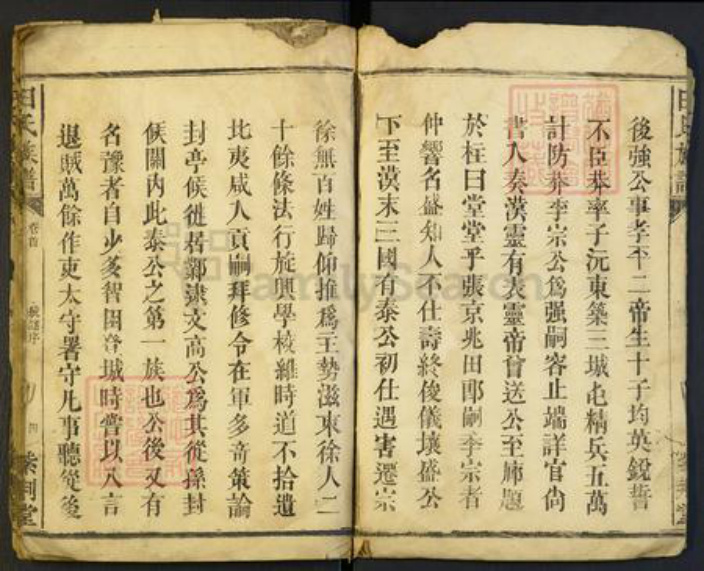 後強公事孝平二帝生十子均英銳誓
不臣莽率子沅東築三城屯精兵五萬
計防莽李宗公為强嗣容止端詳官尙
書入奏漢靈有表靈帝曾送公至題
於柱曰堂堂乎張京兆田郎嗣李宗者
仲響名盛知人不仕壽終俊儀壤盛公
下至漢末三國有泰公初仕遇害遷宗
徐無百姓歸仰推為王勢滋東徐人二
十餘條法行旋興學校維時道不拾遺
比夷咸人貢嗣拜修令在軍多奇策論
封亭候徙居鄴逮文高公為其從孫封
候關內此泰公之第一族也公後又有
名豫者自少多智困登城時嘗以八言
退賊萬餘作吏太守署守凡事聽從後
田氏族譜
卷首
序
四
紫荆堂
FamilySearch